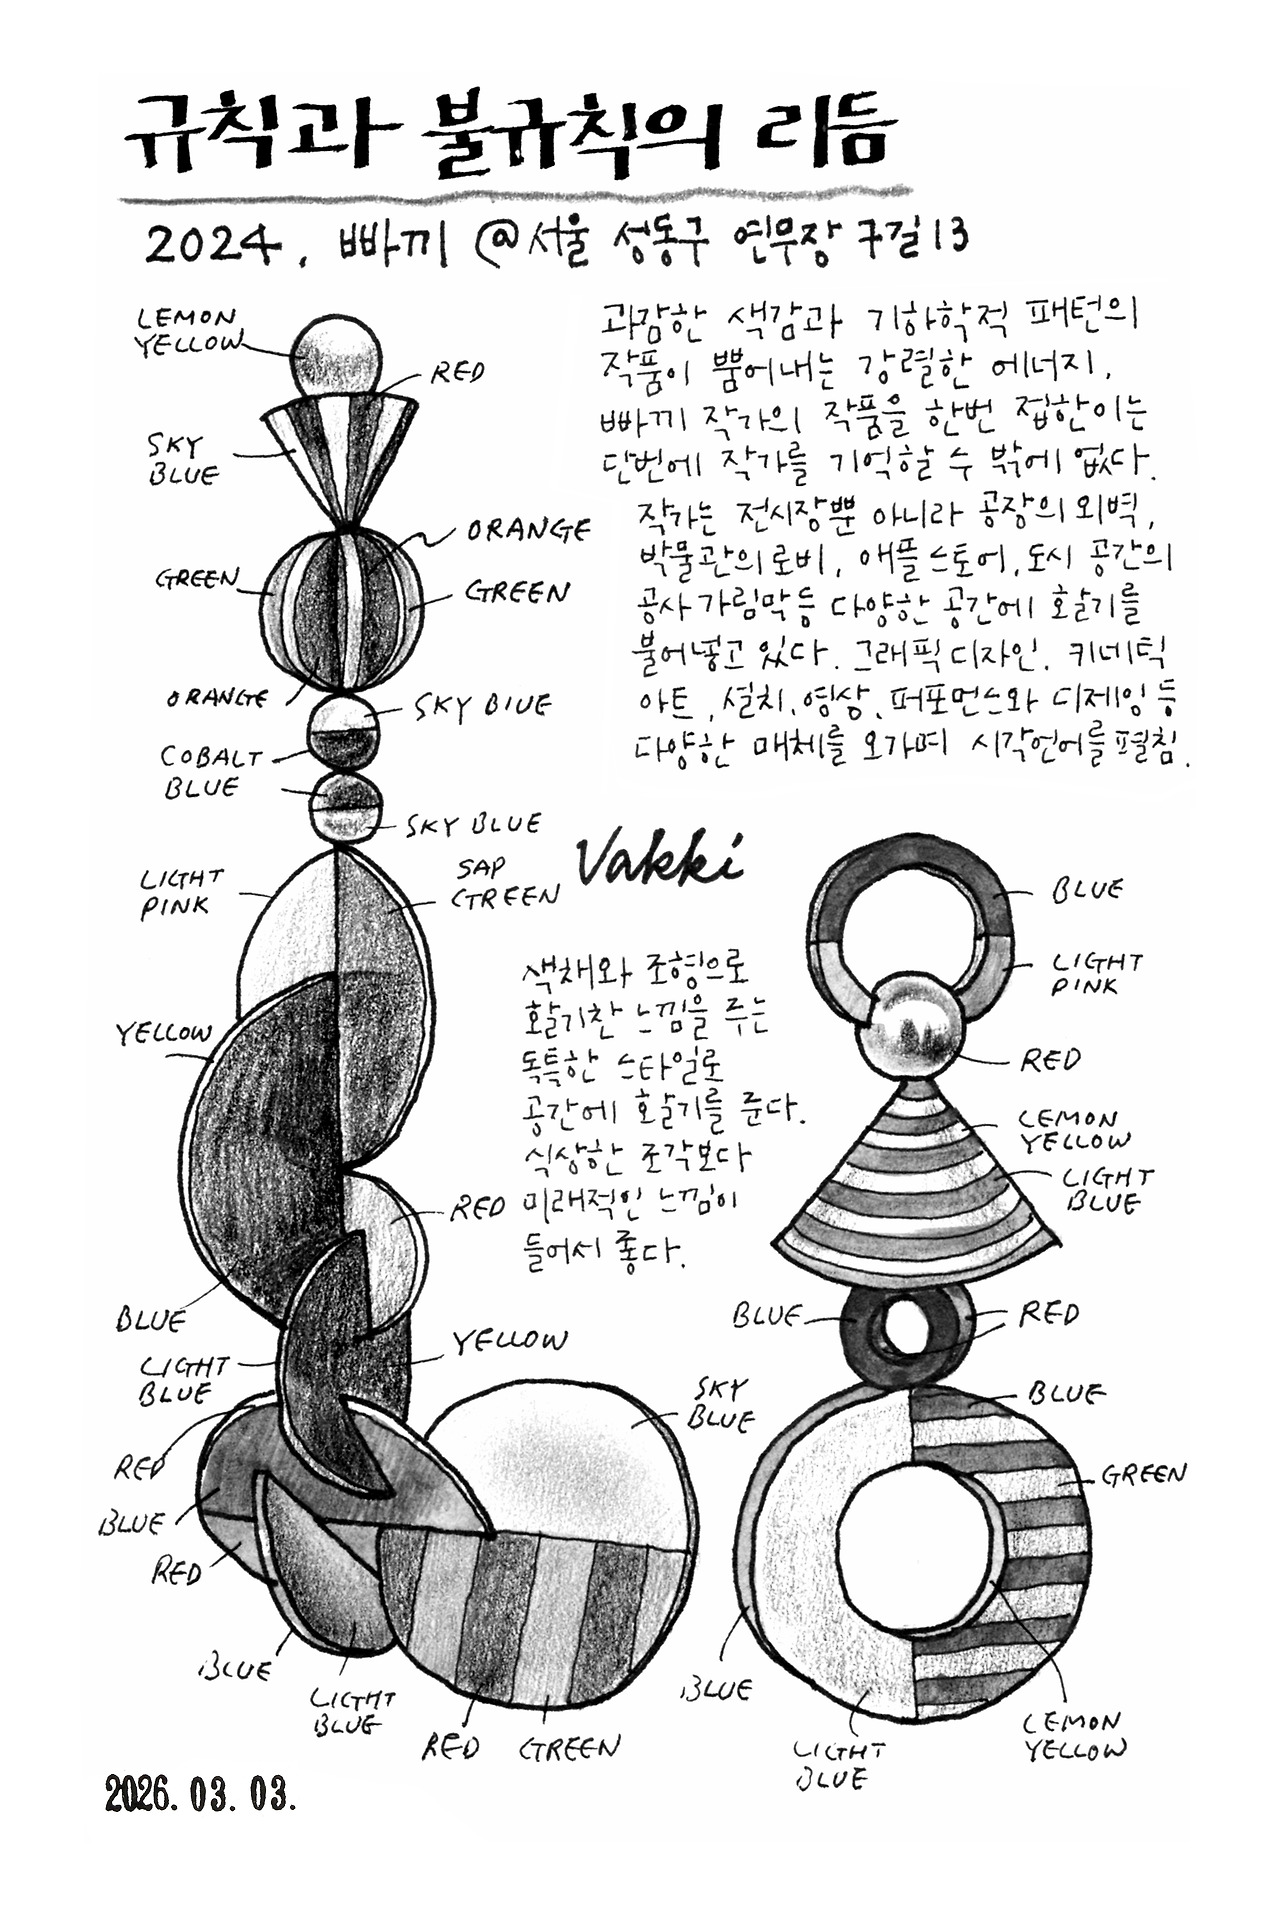 규칙과 불규칙의 리듬
2024, 빠끼 @서울 성동구 연무장 7길 13
LEMON
YELLOW
RED
SKY
BLUE
ORANGE
GREEN
GREEN
ORANGE
SKY BLUE
COBALT
BLUE
SKY BLUE
LIGHT
PINK
SAP
GREEN
YELLOW
RED
BLUE
LIGHT
BLUE
YELLOW
SKY
BLUE
RED
BLUE
RED
BLUE
LIGHT
BLUE
RED
GREEN
과감한 색감과 기하학적 패턴의
작품이 뿜어내는 강렬한 에너지,
빠끼 작가의 작품을 한번 접한이는
단번에 작가를 기억할 수 밖에 없다.
작가는 전시장뿐 아니라 공장의 외벽,
박물관의 로비, 애플스토어, 도시 공간의
공사 가림막 등 다양한 공간에 활기를
불어넣고 있다. 그래픽 디자인, 키네틱
아트, 설치, 영상, 퍼포먼스와 디제잉 등
다양한 매체를 오가며 시각언어를 펼침.
Vakki
색채와 조형으로
활기찬 느낌을 주는
독특한 스타일로
공간에 활기를 준다.
식상한 조각보다
미래적인 느낌이
들어서 좋다.
BLUE
LIGHT
PINK
RED
LEMON
YELLOW
LIGHT
BLUE
BLUE
RED
BLUE
GREEN
BLUE
LIGHT
BLUE
LEMON
YELLOW
2026. 03. 03.